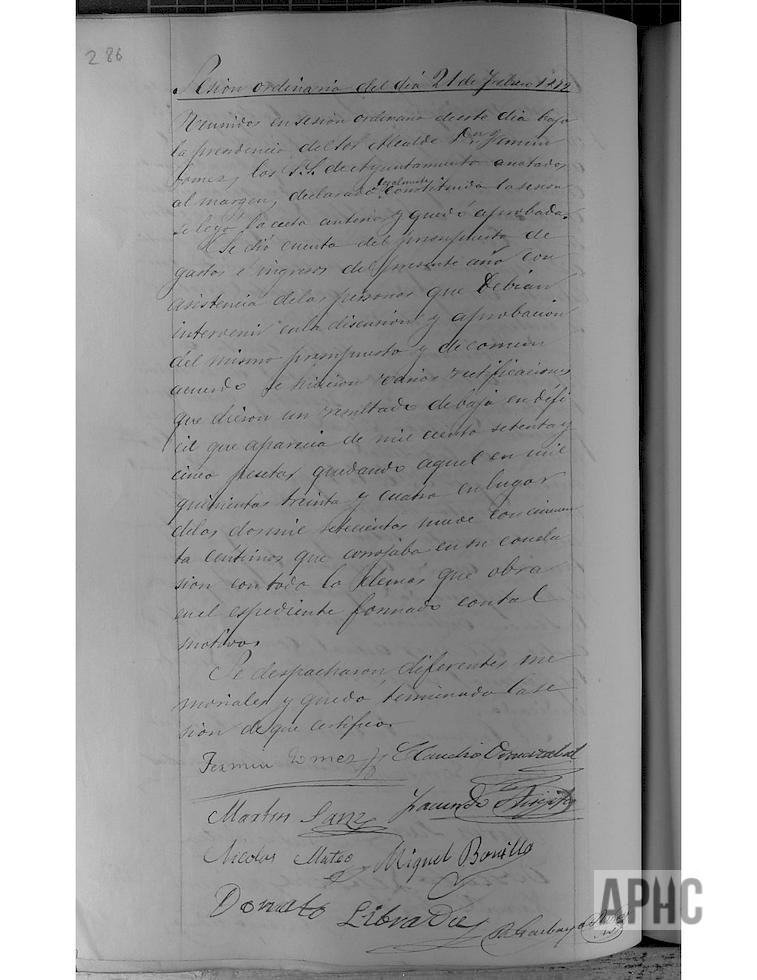 286
Sesion ordinaria del dia 21 de Febrero
Reunidos en sesion ordinaria de este dia bajo
la presidencia del Sor Alcalde Dn Fermin
Gomez, los S.S. de Ayuntamiento anotados
al margen, declarada legalmente constituida la sesion
se leyó la acta anterior y quedó aprobada.
Se dió cuenta del presupuesto de
gastos e ingresos del presente año con
asistencia de las personas que debian
intervenir en la discusion y aprobacion
del mismo presupuesto y de comun
acuerdo se hicieron varias rectificaciones
que dieron un resultado de baja en défi
cit que aparecia de mil ciento setenta y
cinco pesetas quedando aquel en mil
quinientas treinta y cuatro en lugar
de las dos mil setecientas nueve con cincuen
ta centimos que arrojaba en su conclu
sion con todo lo demas que obra
en el espediente formado con tal
motivo.
Se despacharon diferentes me
moriales y quedó terminada la se
sion de que certifico.
Fermin Gomez Claudio
Martin Sanz Facundo
Nicolas Mateo Miguel Bonilla
Donato Librada
APHC